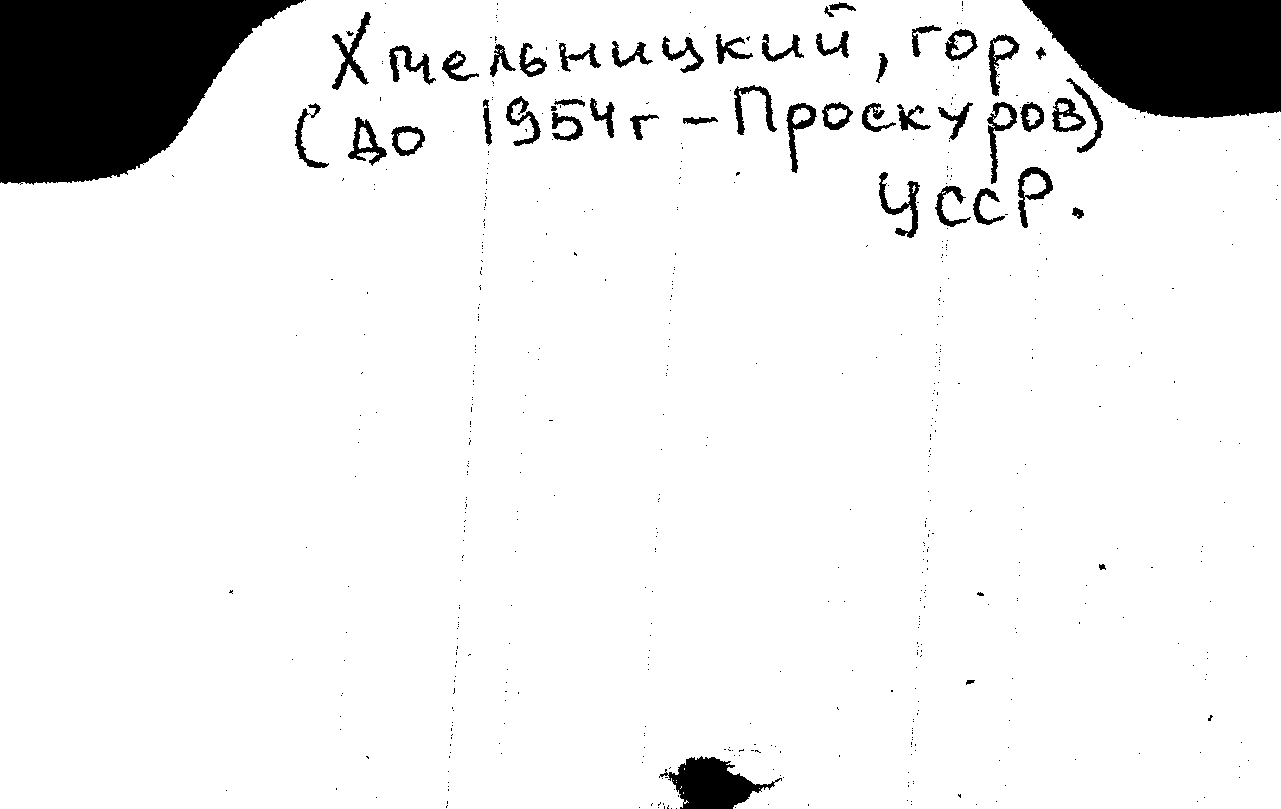 Хмельницкий, гор.
(до 1954г – Проскуров)
УССР.